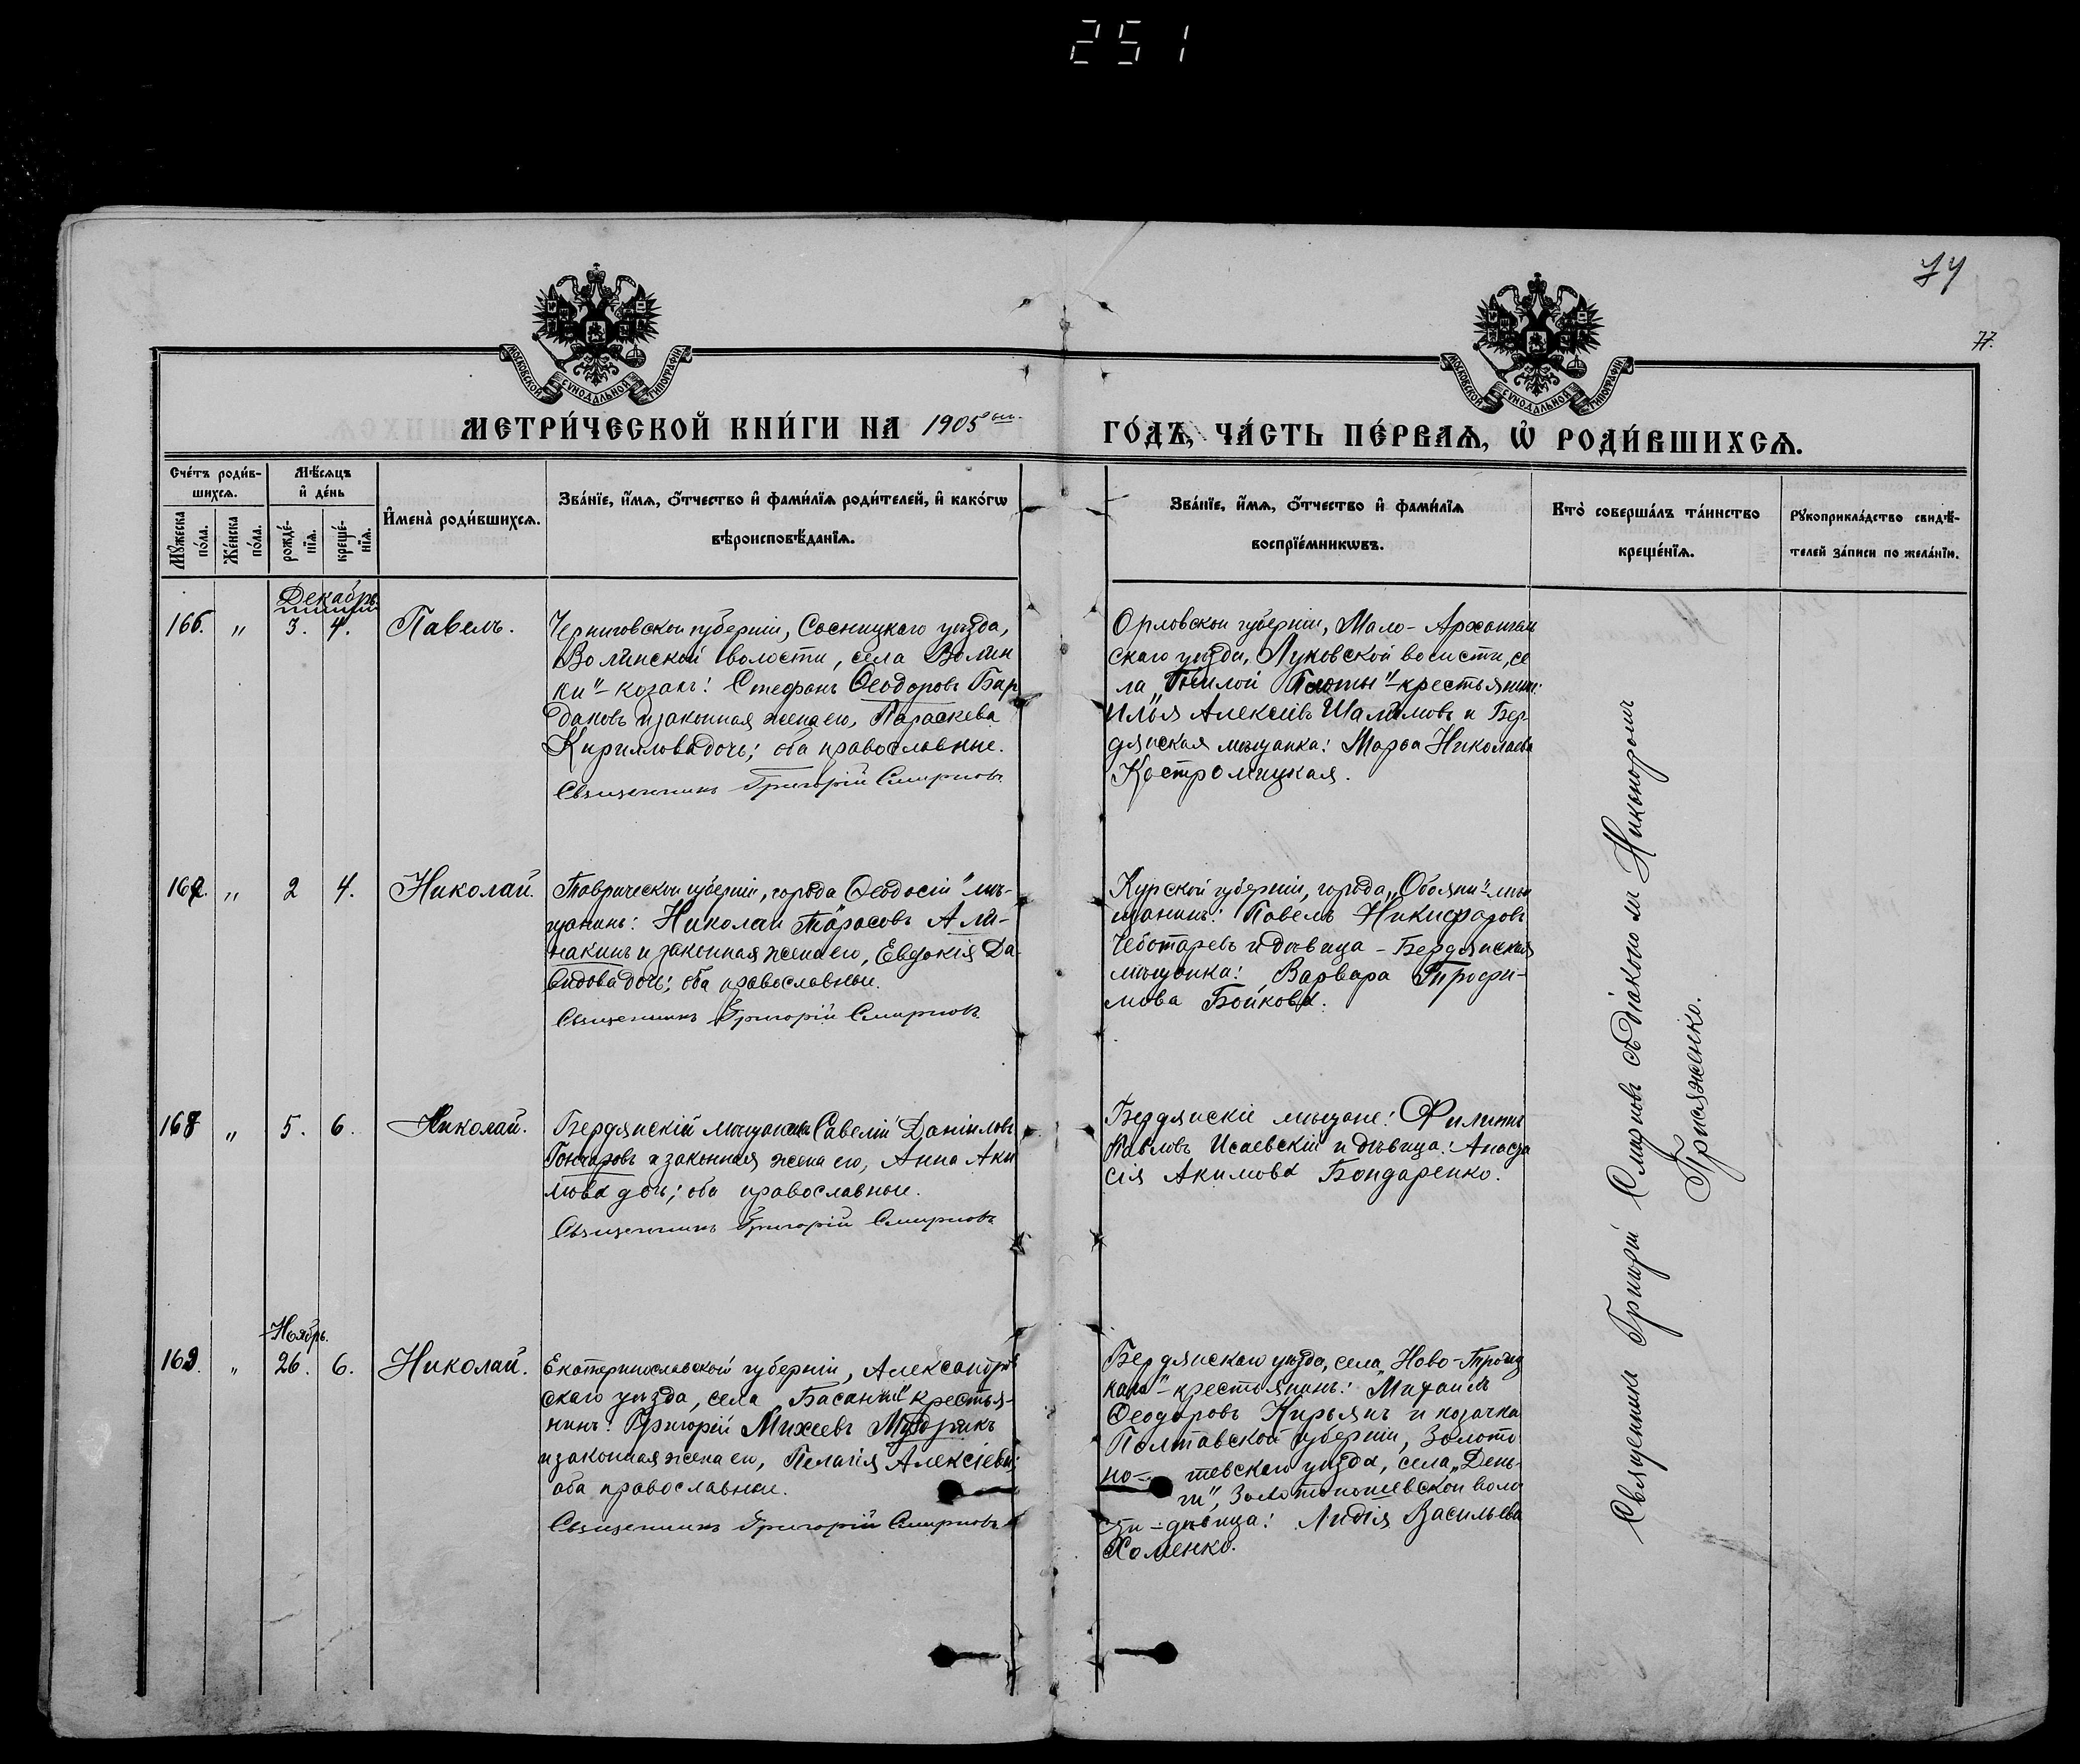 251
74
77.
МОСКОВСКОЙ СУНОДАЛЬНОЙ ТИПОГРАФІИ
МОСКОВСКОЙ СУНОДАЛЬНОЙ ТИПОГРАФІИ
МЕТРИ́ЧЕСКОЙ КНИ́ГИ НА 1905
ГО́ДЪ, ЧА́СТЬ ПЕ́РВАѦ, Ѡ РОДИ́ВШИХСѦ.
Сче́тъ роди́в-
шихсѧ.
Мѣ́сѧцъ
и҆ де́нь
Мꙋ́жеска
по́ла.
Же́нска
по́ла.
рожде́-
нїѧ.
креще́-
нїѧ.
И҆мена̀ роди́вшихсѧ.
Зва́нїе, и҆́мѧ, ѻ҆́тчество и҆ фами́лїѧ роди́телей, и҆ како́гѡ
вѣроисповѣ́данїѧ.
Зва́нїе, и҆́мѧ, ѻ҆́тчество и҆ фами́лїѧ
воспрїе́мникѡвъ.
Кто̀ соверша́лъ та́инство
креще́нїѧ.
Рꙋкоприкла́дство свидѣ́-
телей за́писи по жела́нїю.
Декабрь
166. " 3. 4. Павелъ.
Черниговской губерніи, Сосницкаго уѣзда,
Волинской волости, села „Волин
ки" - козакъ: Стефанъ Ѳеодоровъ Бар
даковъ и законная жена его, Параскева
Кириллова дочь; оба православные.
Священникъ Григорій Смирновъ.
Орловской губерніи, Мало-Архангель
скаго уѣзда, Луковской волости, се
ла „Гнилой Плоты" - крестьянинъ:
Илья Алексѣевъ Шалимовъ и Бер
дянская мѣщанка: Марѳа Николаева
Костромицкая.
167. " 2 4. Николай.
Таврической губерніи, города Ѳеодосіи" мѣ-
щанинъ: Николай Тарасовъ Али-
накинъ и законная жена его, Евдокія Да-
видова дочь; оба православные.
Священникъ Григорій Смирновъ.
Курской губерніи, города „Обояни" - мѣ
щанинъ: Павелъ Никифоровъ
Чеботаревъ и дѣвица - Бердянская
мѣщанка: Варвара Трофи-
мова Бойкова.
168 " 5. 6. Николай.
Бердянскій мѣщанинъ Савелій Даніиловъ
Гончаровъ и законная жена его, Анна Аки
мова дочь; оба православные.
Священникъ Григорій Смирновъ
Бердянскіе мѣщане: Филиппъ
Павловъ Исаевскій и дѣвица: Анаста
сія Акимова Бондаренко.
Ноябрь.
169. " 26. 6. Николай.
Екатеринославской губерніи, Александров
скаго уѣзда, села „Басани" крестья-
нинъ: Григорій Михеевъ Мудрикъ
и законная жена его, Пелагія Алексіева;
оба православные.
Священникъ Григорій Смирновъ
Бердянскаго уѣзда, села „Ново-Троиц
каго" - крестьянинъ: Михаилъ
Ѳеодоровъ Кирьянъ и козачка
Полтавской губерніи, Золото
но- шевскаго уѣзда, села „День-
ги", Золотоношевской воло
сти - дѣвица: Лидія Васильева
Хоменко.
Священникъ Григорій Смирновъ съ діакономъ Никаноромъ
Пріаженко.